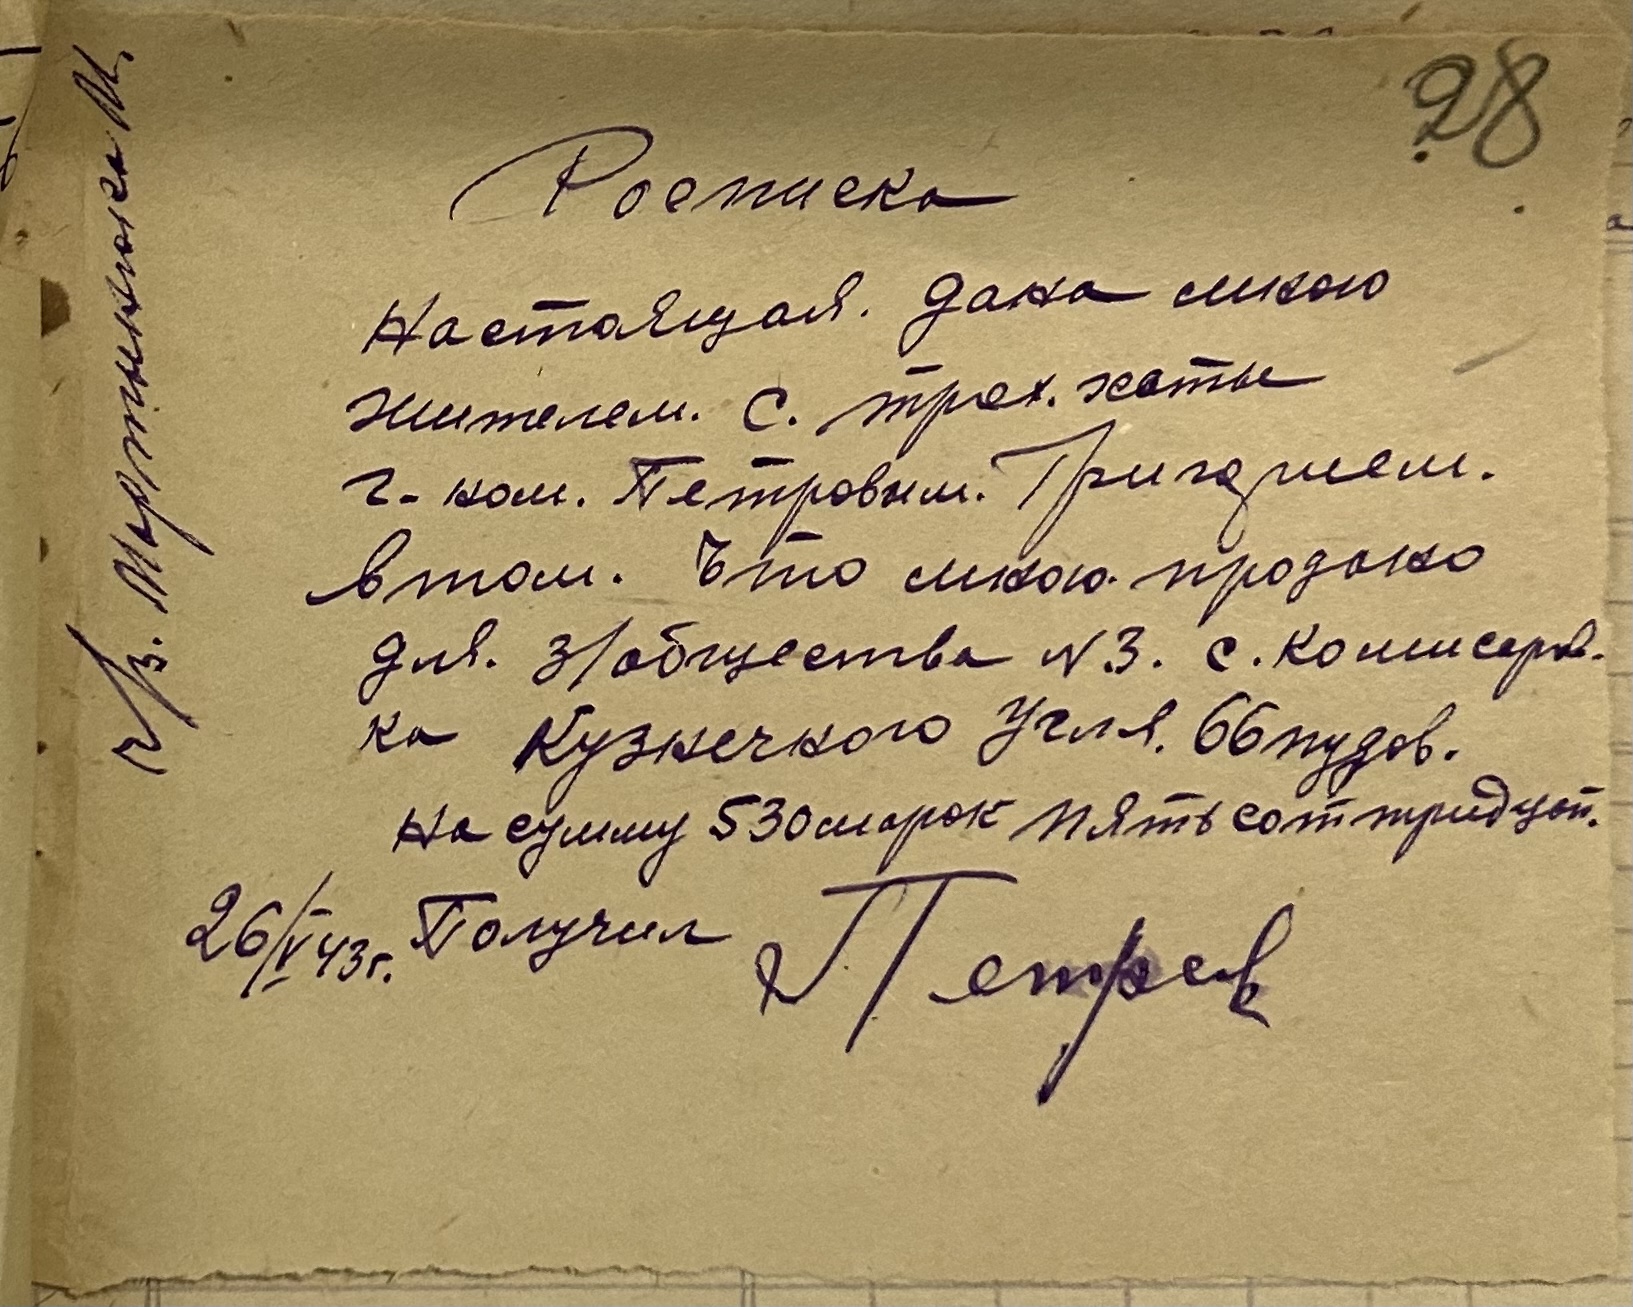 28
Росписка
Настоящая. дана мною
жителем. с. трех. хаты
г-ном. Петровым. Григорием.
втом. Что мною продано
для. з/общества N3. с. Комисаров.
ка Кузнечного Угля. 66 пудов.
На сумму 530 марок пять сот тридцат.
26/V 43 г. Получил Петров
Мартыненко М.